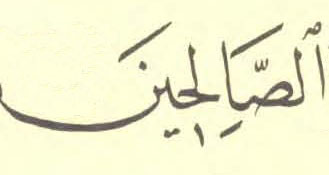 ٱلصَّٰلِحِينَ